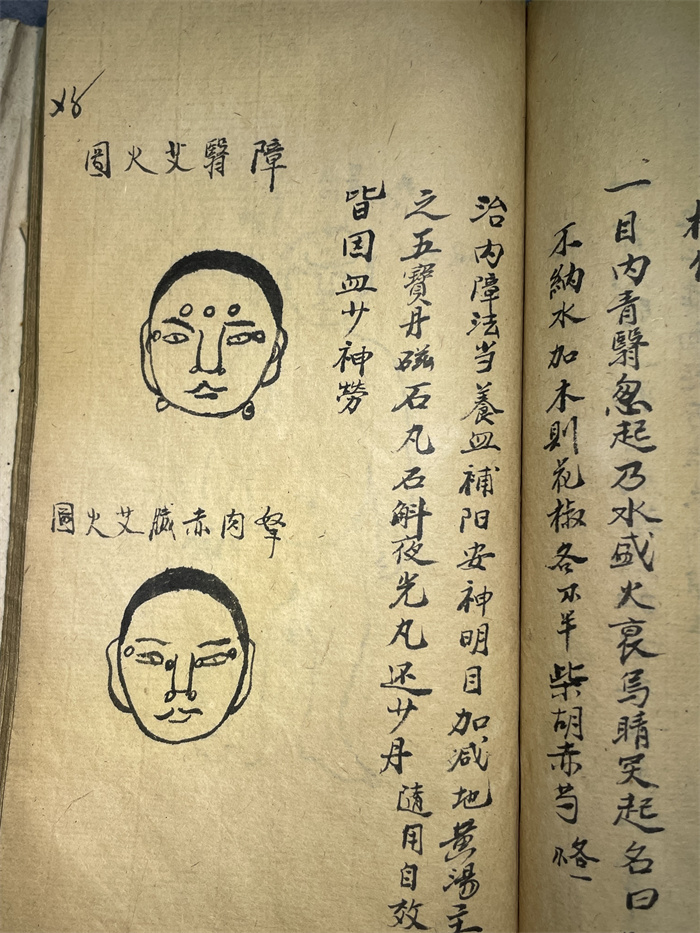 一目内青翳忽起乃水盛火衰烏睛突起名曰
不納水加木則花椒各不半柴胡赤芍
治内障法当養血補阳安神明目加减地黄湯主
之五寶丹磁石丸石斛夜光丸还少丹隨用自效
皆因血少神勞
障翳艾火圖
胬肉赤脈艾火圖